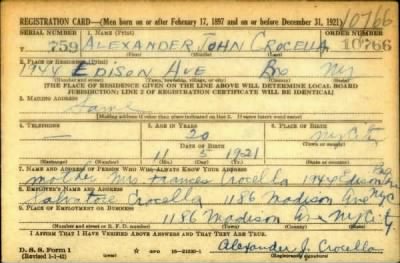 REGISTRATION CARD—(Men born on or after February 17, 1897 and on or before December 31, 1921) 10766
SERIAL NUMBER 1. NAME (Print) ORDER NUMBER
759 ALEXANDER JOHN CROCELLA 10766
(First) (Middle) (Last)
2. PLACE OF RESIDENCE (Print)
1944 EDISON AVE Bro NY
(Number and street) (Town, township, village, or city) (County) (State)
[THE PLACE OF RESIDENCE GIVEN ON THE LINE ABOVE WILL DETERMINE LOCAL BOARD
JURISDICTION; LINE 2 OF REGISTRATION CERTIFICATE WILL BE IDENTICAL]
3. MAILING ADDRESS
Same
[Mailing address if other than place indicated on line 2. If same insert word same]
4. TELEPHONE 5. AGE IN YEARS 6. PLACE OF BIRTH
— 20 NYC
DATE OF BIRTH
11 5 1921
(Exchange) (Number) (Mo.) (Day) (Yr.) (State or country)
7. NAME AND ADDRESS OF PERSON WHO WILL ALWAYS KNOW YOUR ADDRESS
mother Mrs Frances Crocella 1944 Edison Ave
8. EMPLOYER'S NAME AND ADDRESS
Salvatore Crocella 1186 Madison Ave NYC
9. PLACE OF EMPLOYMENT OR BUSINESS
1186 Madison Ave NY City
(Number and street or R. F. D. number) (Town) (County) (State)
I AFFIRM THAT I HAVE VERIFIED ABOVE ANSWERS AND THAT THEY ARE TRUE.
D. S. S. Form 1
(Revised 1-1-42) (over)
Alexander J. Crocella